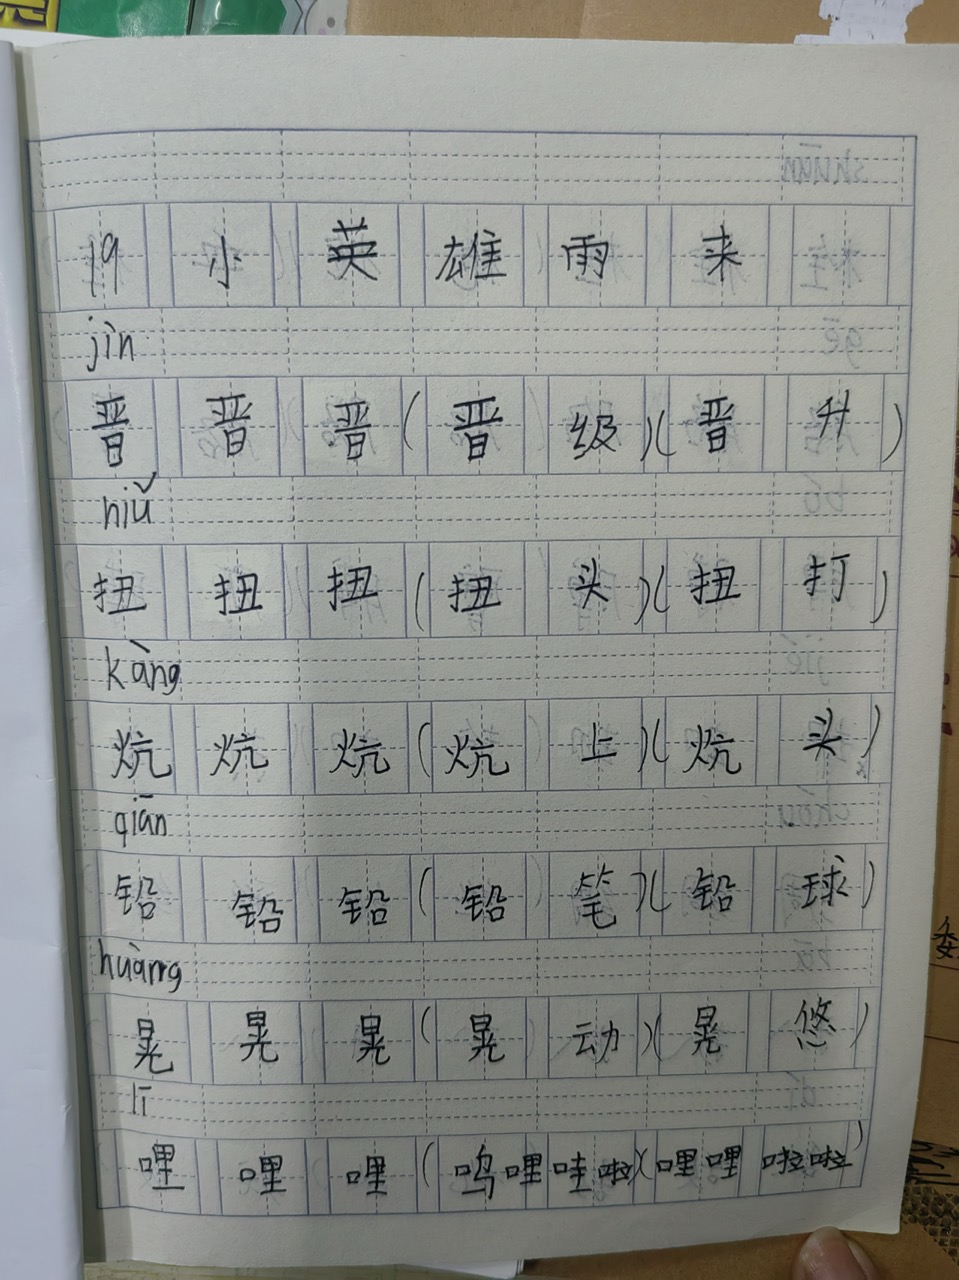 19小英雄雨来
jìn
晋晋晋(晋级)(晋升)
niǔ
扭扭扭(扭头)(扭打)
kàng
炕炕炕(炕上)(炕头)
qiān
铅铅铅(铅笔)(铅球)
huàng
晃晃晃(晃动)(晃悠)
lī
哩哩哩(呜哩哇啦)(哩哩啦啦)